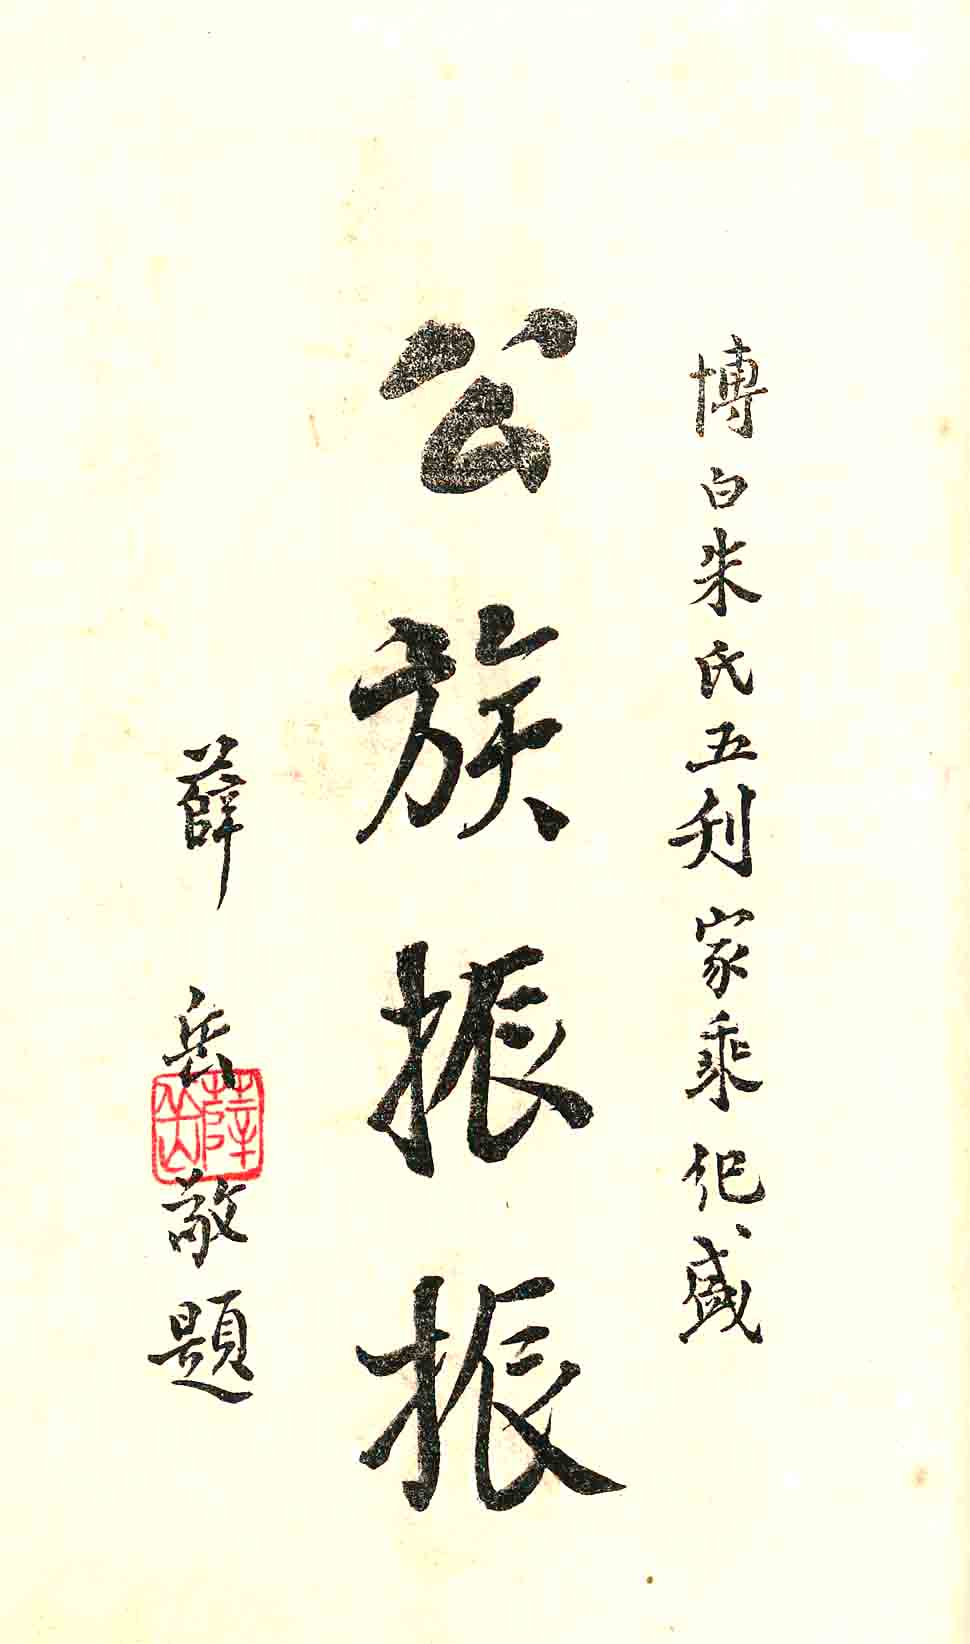 博白朱氏五刊家乘紀盛
公族振振
薛岳敬題
薛岳